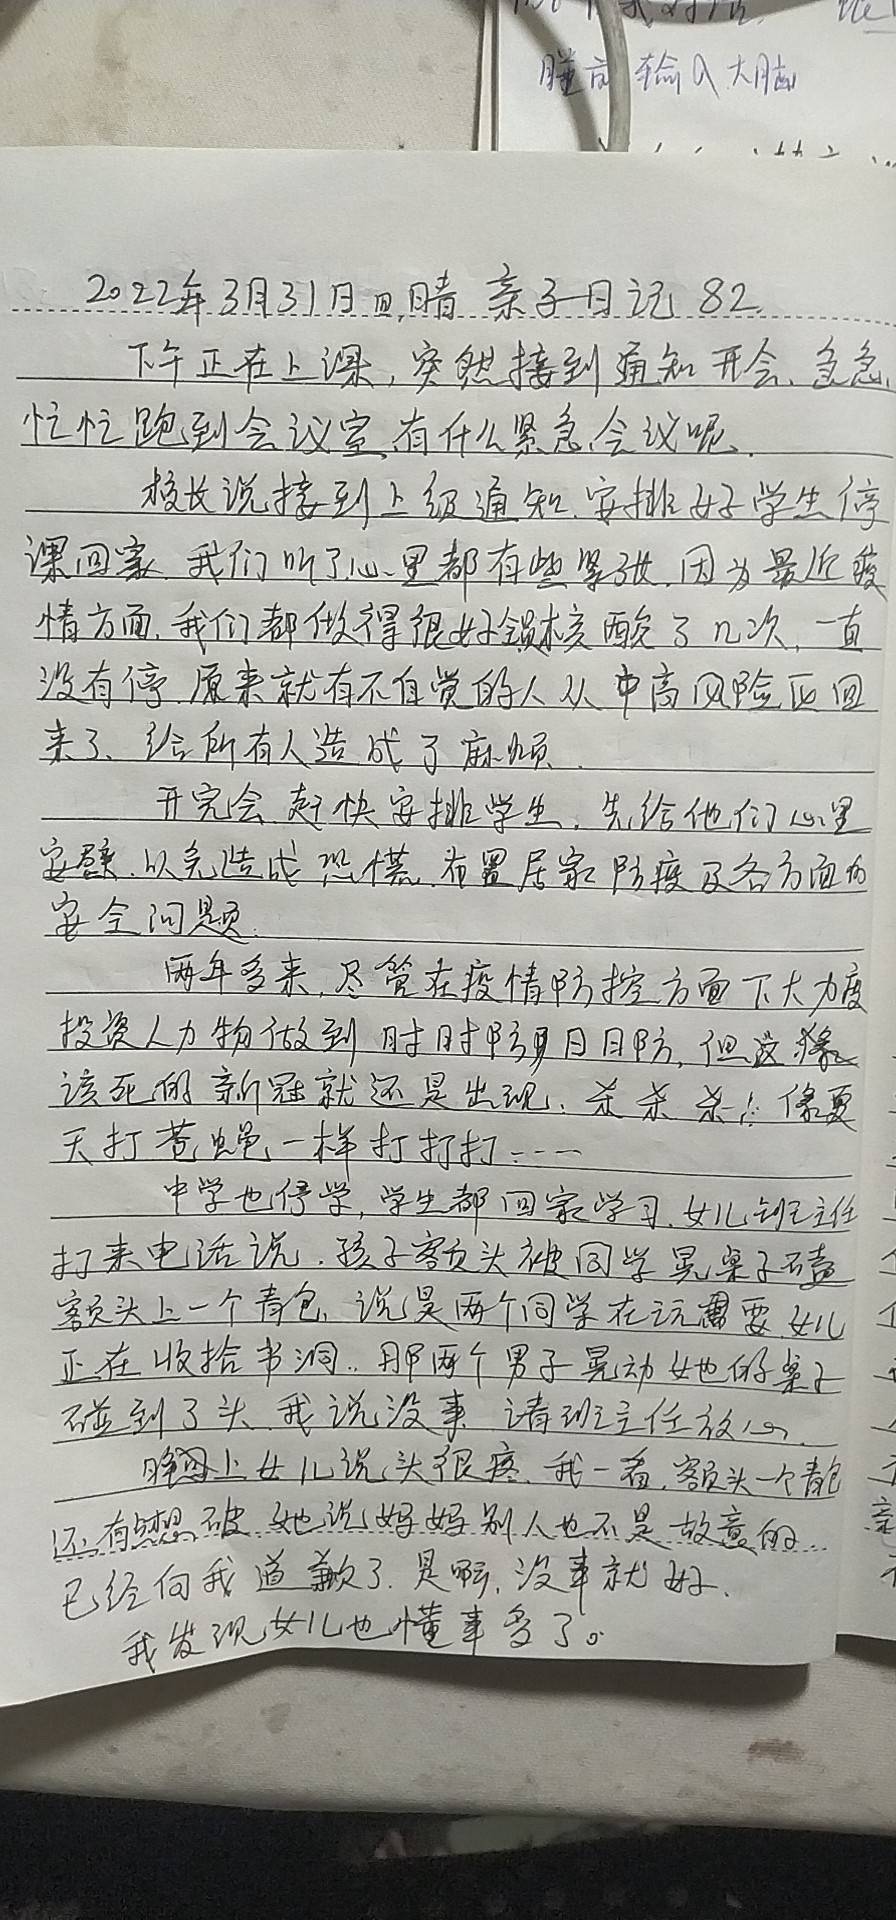 瞳高输入大脑
2022年3月31日四,晴 亲子日记 82
下午正在上课,突然接到通知开会、急急
忙忙跑到会议室,有什么紧急会议呢.
校长说接到上级通知.安排好学生停
课回家.我们听了心里都有些紧张.因为最近疫
情方面,我们都做得很好 核酸了几次,一直
没有停.原来就有不自觉的人从中高风险区回
来了、给所有人造成了麻烦.
开完会赶快安排学生,先给他们心里
安慰.以免造成恐慌.布置居家防疫及各方面的
安全问题.
两年多来,尽管在疫情防控方面下大力度
投资人力物做到时时防日日防,但这
该死的新冠就还是出现、杀杀杀!像夏
天打苍蝇一样打打打----
中学也停学,学生都回家学习.女儿班主任
打来电话说.孩子额头被同学晃桌子磕
额头上一个青包,说是两个同学在玩耍.女儿
正在收拾书洞..那两个男子晃动她的桌子
碰到了头.我说没事 请班主任放心.
晚上女儿说头很疼.我一看,额头一个青包
还有点破 她说妈妈别人也不是故意的...
已经向我道歉了.是啊,没事就好.
我发现女儿也懂事多了。